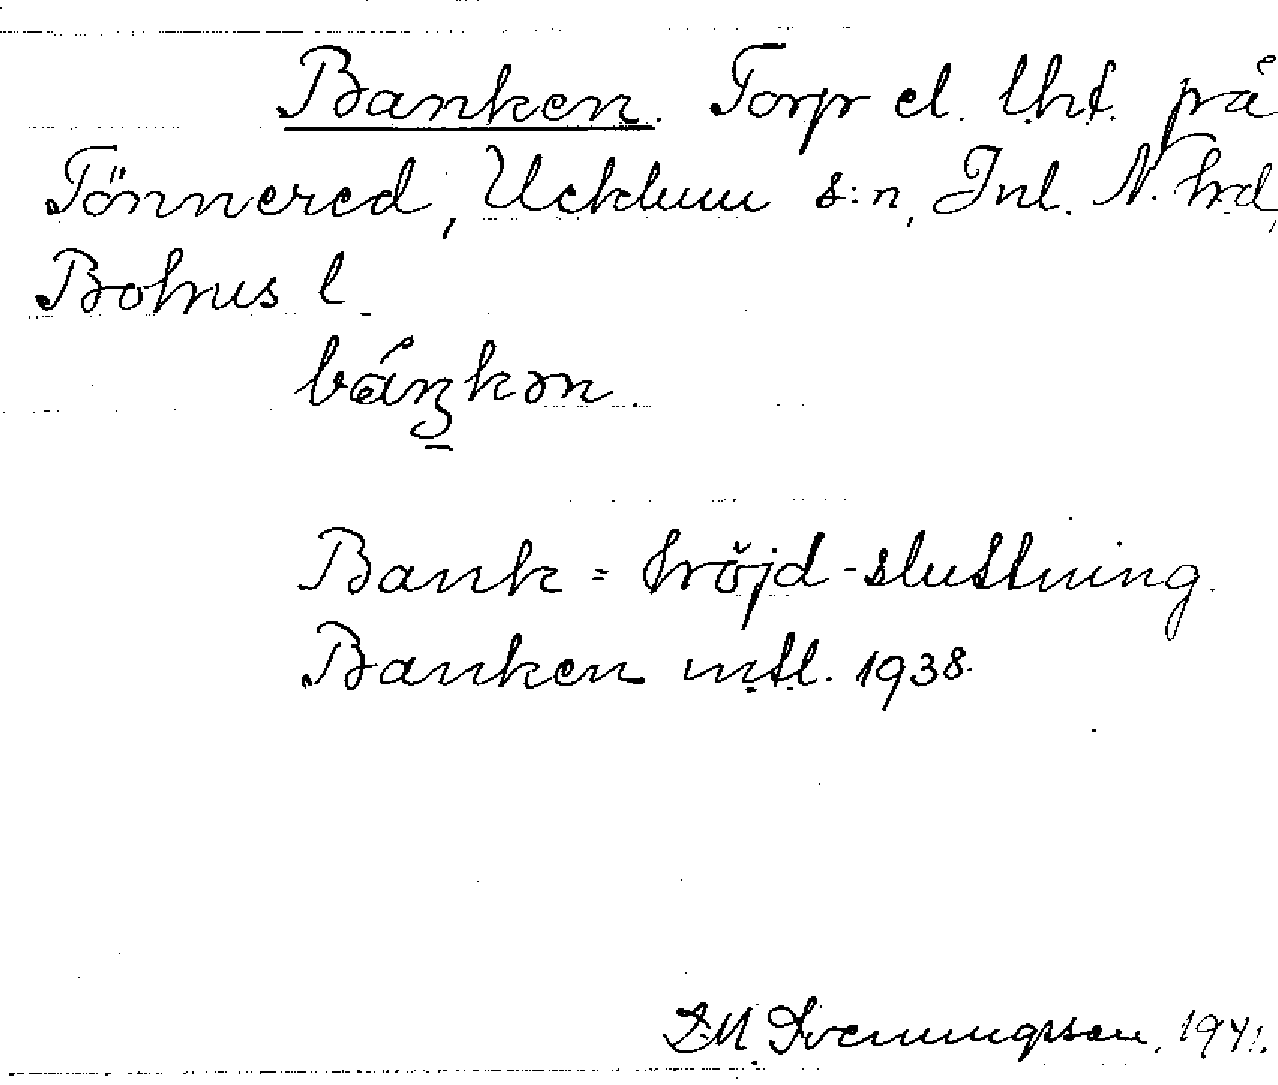 Banken. Torp el. lht. på
Tönnered, Ucklum s:n, Inl. N. hd,
Bohus l.
báŋkən.
Bank = höjd-sluttning.
Banken mtl. 1938.
Svenningsson, 1941.